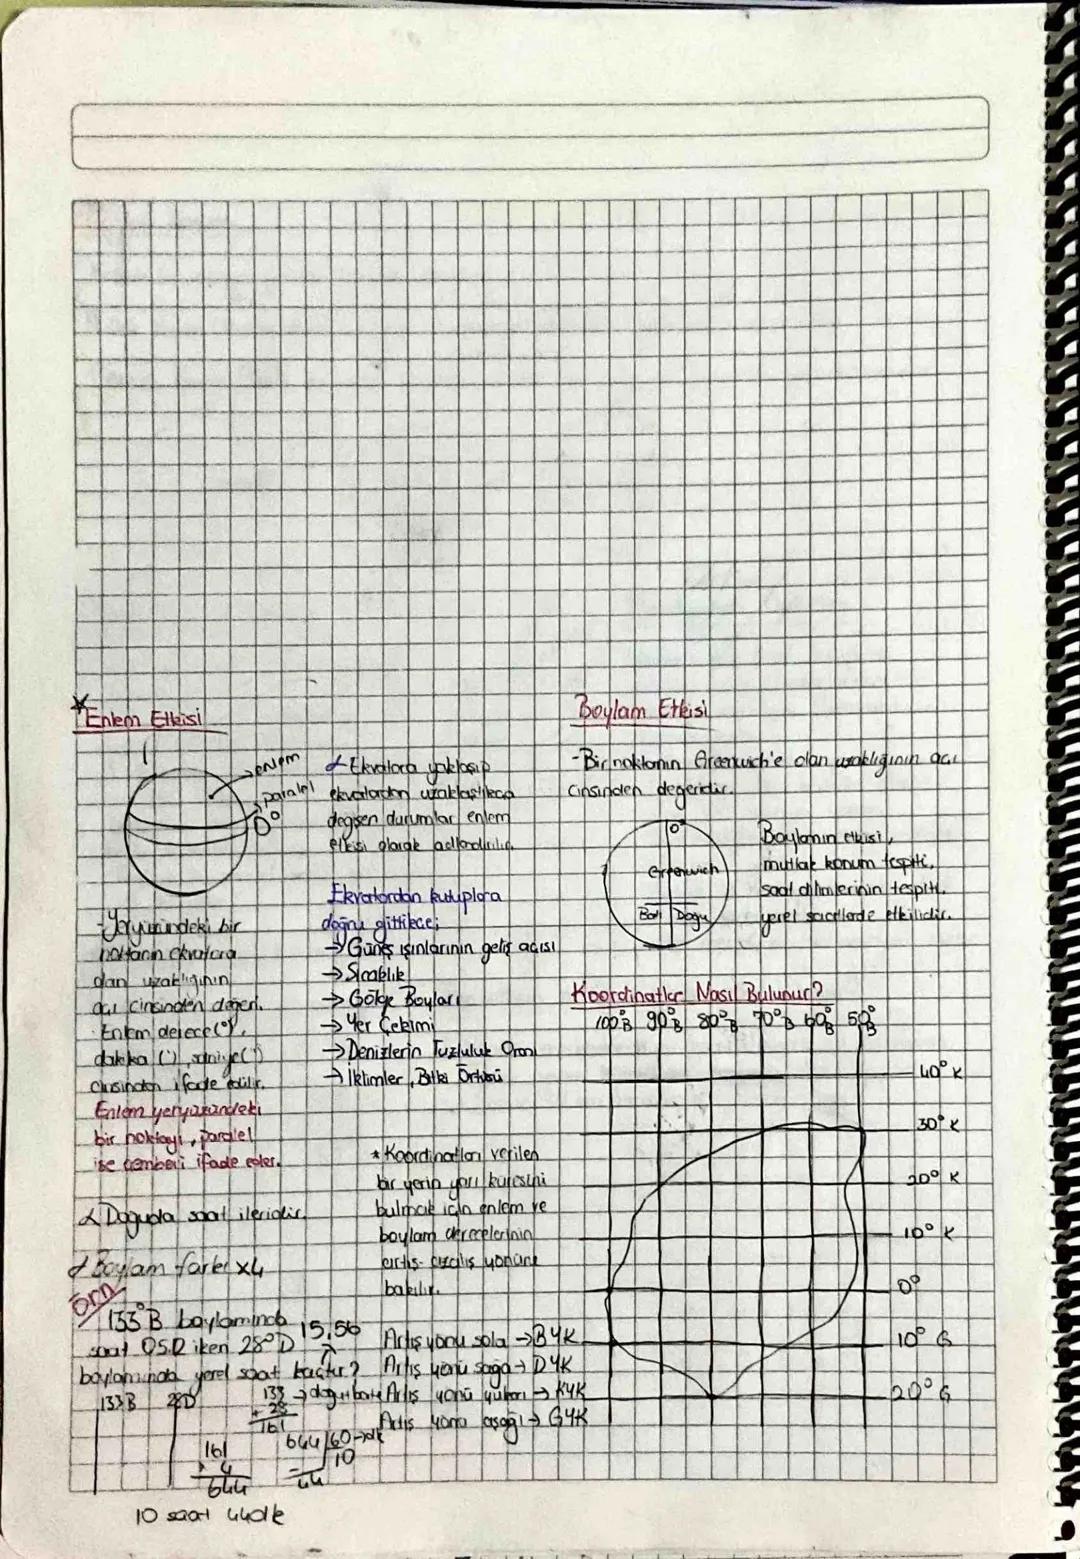 Enlem Etkisi
enlem
paralel
0°
- Yeryüzündeki bir
noktanın ekvatora
olan uzaklığının
açı cinsinden değeri.
Enlem, derece (°),
dakika ('), saniye (")
cinsinden ifade edilir.
Enlem yeryüzündeki
bir noktayı, paralel
ise çemberi ifade eder.
Doğuda saat ileridir.
Boylam farkı x4
Örn
133°B boylamında
saat 05.12 iken 28°D
15.56
boylamında yerel saat kaçtır?
133B 28D
133 → doğu batı
+ 28
161
161
x 4
644
644 60 → dk
10
44
10 saat 44dk
Ekvatora yaklaşıp
ekvatordan uzaklaştıkça
değişen durumlar enlem
etkisi olarak adlandırılır.
Ekvatordan kutuplara
doğru gittikçe;
→ Güneş ışınlarının geliş açısı
→ Sıcaklık
→ Gölge Boyları
→ Yer Çekimi
→ Denizlerin Tuzluluk Oranı
→ İklimler, Bitki Örtüsü
* Koordinatları verilen
bir yerin yarı küresini
bulmak için enlem ve
boylam derecelerinin
artış-azalış yönüne
bakılır.
Artış yönü sola → BYK
Artış yönü sağa → DYK
Artış yönü yukarı → KYK
Artış yönü aşağı → GYK
Boylam Etkisi
- Bir noktanın Greenwich'e olan uzaklığının açı
cinsinden değeridir.
0°
Greenwich
Batı Doğu
Boylamın etkisi,
mutlak konum tespiti,
saat dilimlerinin tespiti,
yerel saatlerde etkilidir.
Koordinatlar Nasıl Bulunur?
100°B 90°B 80°B 70°B 60°B 50°B
40° K
30° K
20° K
10° K
0°
10° G
20° G